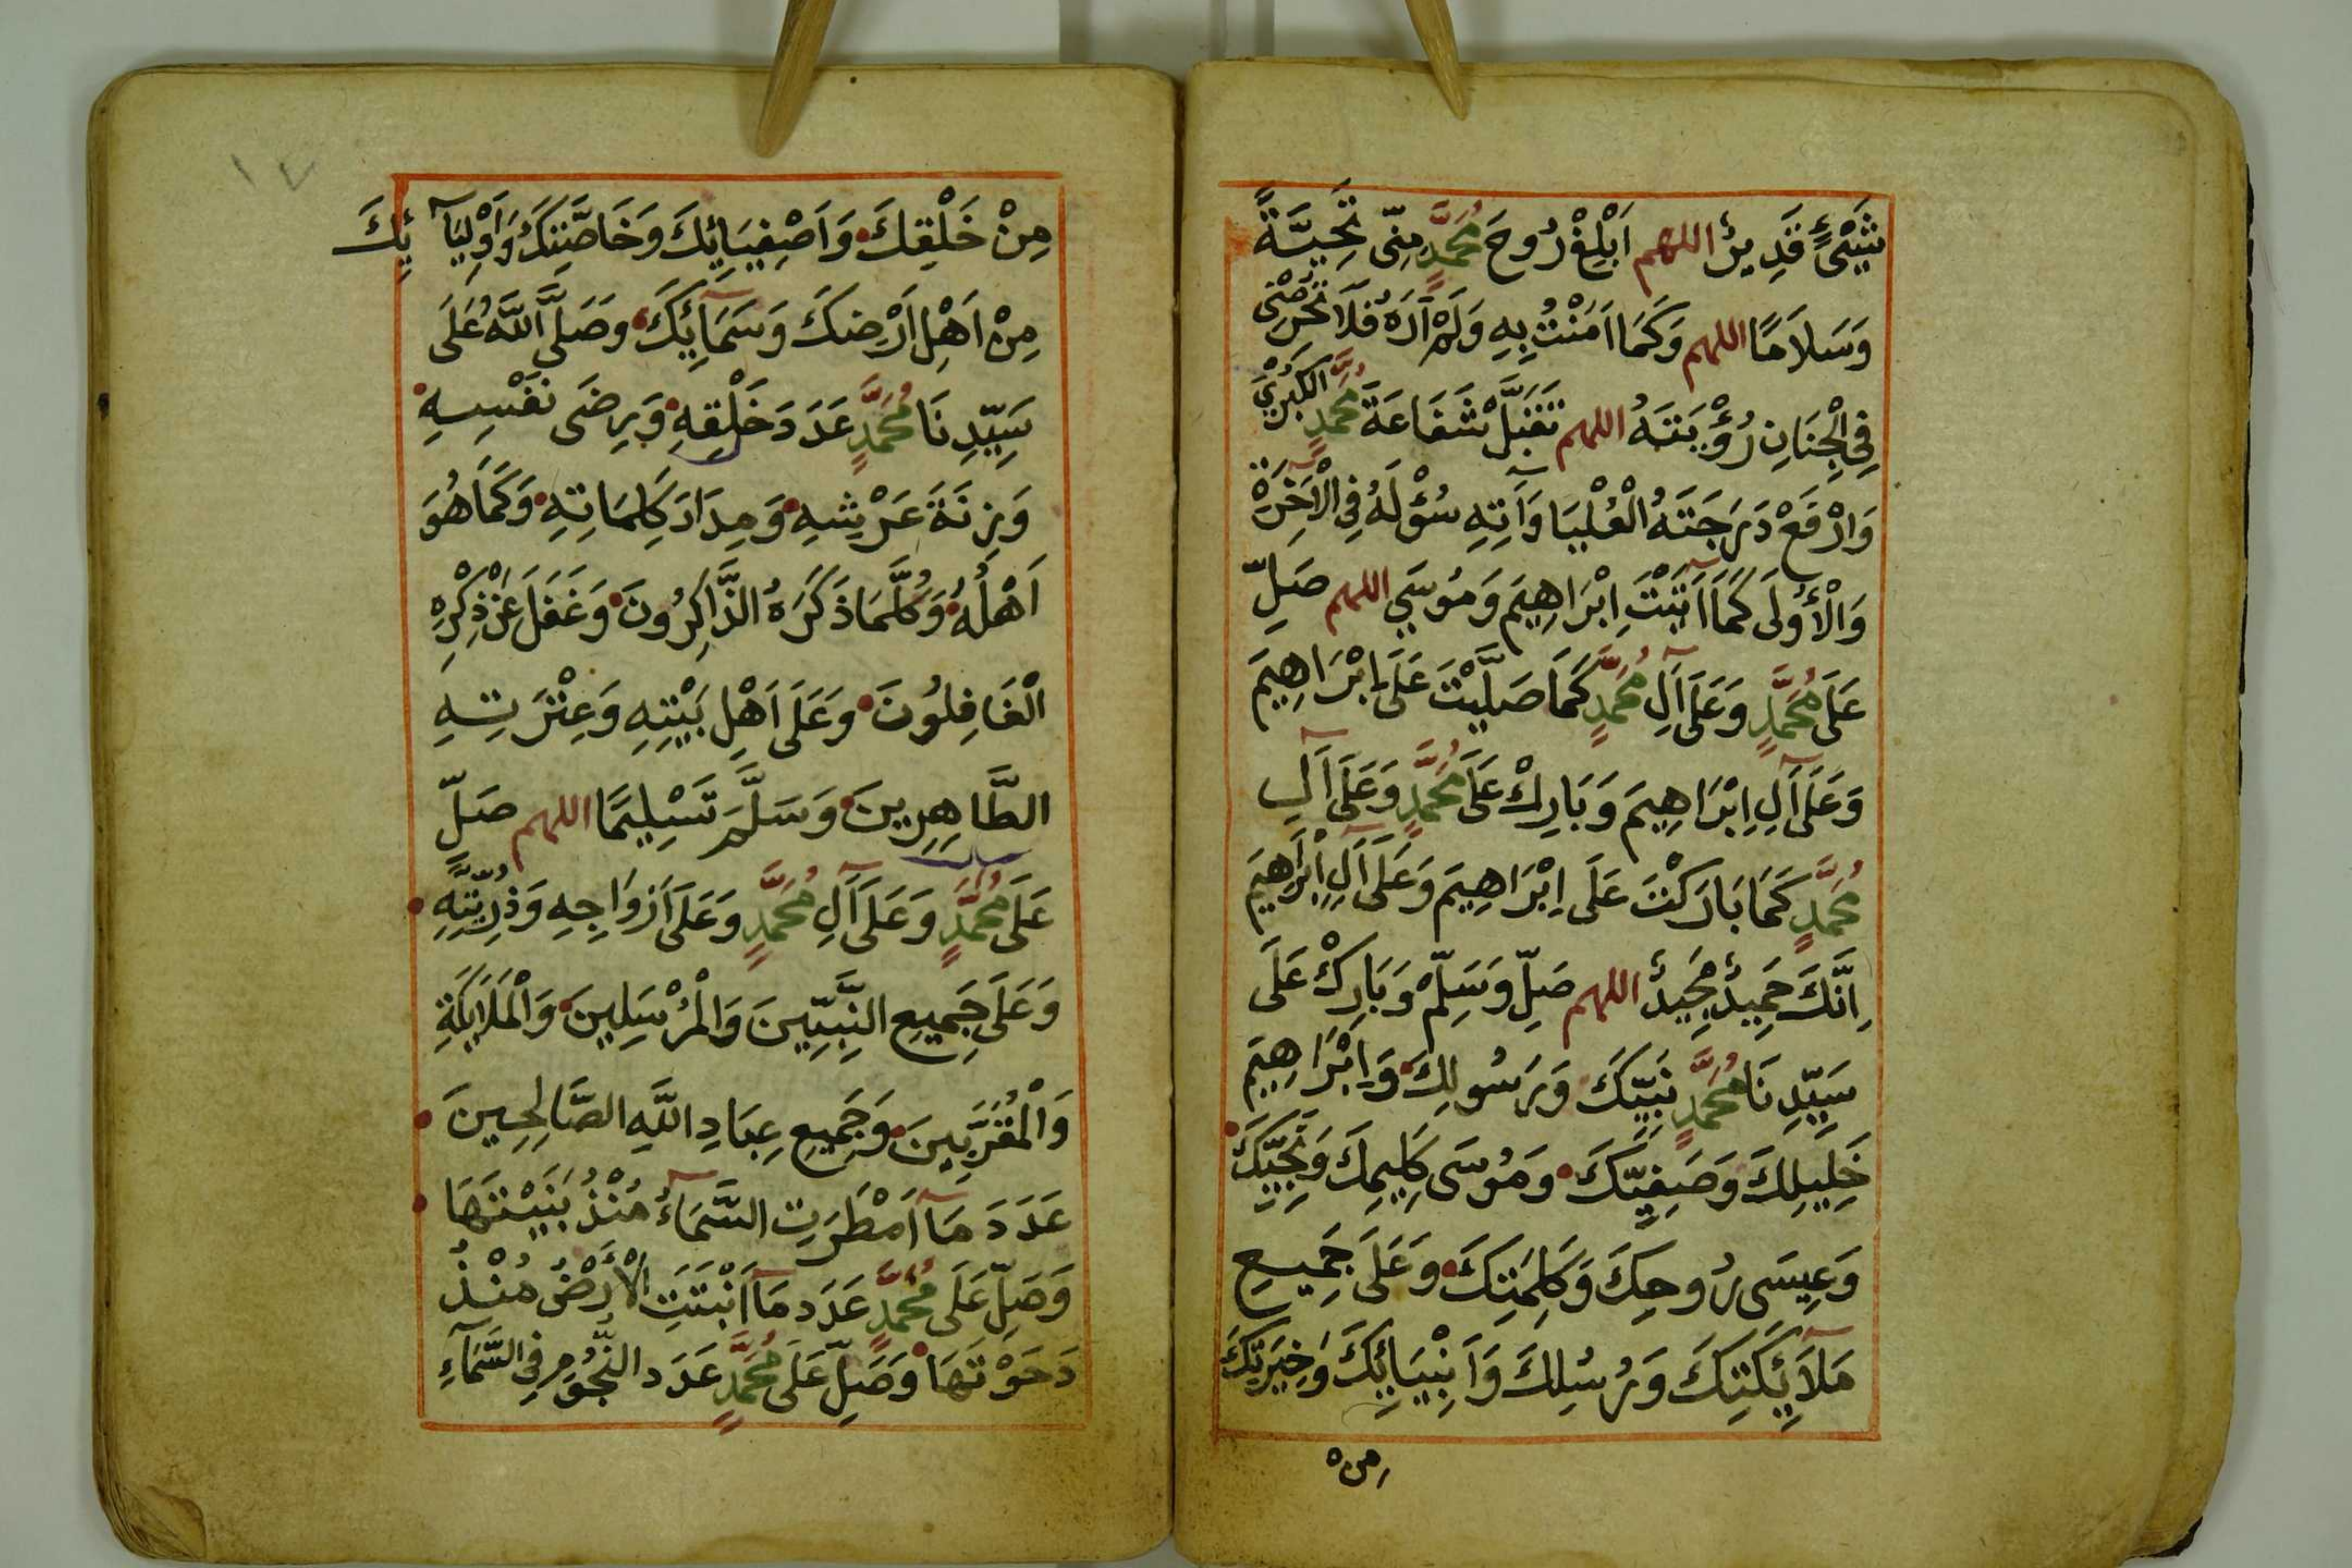 شَيْءٍ قَدِيرٌ اللهم اَبْلِغْ رُوحَ مُحَمَّدٍ مِنِّي تَحِيَّةً
وَسَلَامًا اللهم وَكَمَا اٰمَنْتُ بِهِ وَلَمْ اَرَهُ فَلَا تَحْرِمْنِي
فِي الْجِنَانِ رُؤْيَتَهُ اللهم تَقَبَّلْ شَفَاعَةَ مُحَمَّدٍ الْكُبْرَى
وَارْفَعْ دَرَجَتَهُ الْعُلْيَا وَآتِهِ سُؤْلَهُ فِي الْآخِرَةِ
وَالْأُولَى كَمَا آتَيْتَ اِبْرَاهِيمَ وَمُوسَى اللهم صَلِّ
عَلَى مُحَمَّدٍ وَعَلَى آلِ مُحَمَّدٍ كَمَا صَلَّيْتَ عَلَى اِبْرَاهِيمَ
وَعَلَى آلِ اِبْرَاهِيمَ وَبَارِكْ عَلَى مُحَمَّدٍ وَعَلَى آلِ
مُحَمَّدٍ كَمَا بَارَكْتَ عَلَى اِبْرَاهِيمَ وَعَلَى آلِ اِبْرَاهِيمَ
اِنَّكَ حَمِيدٌ مَجِيدٌ اللهم صَلِّ وَسَلِّمْ وَبَارِكْ عَلَى
سَيِّدِنَا مُحَمَّدٍ نَبِيِّكَ وَرَسُولِكَ وَاِبْرَاهِيمَ
خَلِيلِكَ وَصَفِيِّكَ وَمُوسَى كَلِيمِكَ وَنَجِيِّكَ
وَعِيسَى رُوحِكَ وَكَلِمَتِكَ وَعَلَى جَمِيعِ
مَلَآئِكَتِكَ وَرُسُلِكَ وَاَنْبِيَائِكَ وَخِيَرَتِكَ
مِن
١٧
مِنْ خَلْقِكَ وَاَصْفِيَائِكَ وَخَاصَّتِكَ وَاَوْلِيَآئِكَ
مِنْ اَهْلِ اَرْضِكَ وَسَمَآئِكَ وَصَلَّى اللَّهُ عَلَى
سَيِّدِنَا مُحَمَّدٍ عَدَدَ خَلْقِهِ وَرِضَى نَفْسِهِ
وَزِنَةَ عَرْشِهِ وَمِدَادَ كَلِمَاتِهِ وَكَمَا هُوَ
اَهْلُهُ وَكُلَّمَا ذَكَرَهُ الذَّاكِرُونَ وَغَفَلَ عَنْ ذِكْرِهِ
الْغَافِلُونَ وَعَلَى اَهْلِ بَيْتِهِ وَعِتْرَتِهِ
الطَّاهِرِينَ وَسَلَّمَ تَسْلِيمًا اللهم صَلِّ
عَلَى مُحَمَّدٍ وَعَلَى آلِ مُحَمَّدٍ وَعَلَى اَزْوَاجِهِ وَذُرِّيَّتِهِ
وَعَلَى جَمِيعِ النَّبِيِّينَ وَالْمُرْسَلِينَ وَالْمَلَائِكَةِ
وَالْمُقَرَّبِينَ وَجَمِيعِ عِبَادِ اللَّهِ الصَّالِحِينَ
عَدَدَ مَآ اَمْطَرَتِ السَّمَآءُ مُنْذُ بَنَيْتَهَا
وَصَلِّ عَلَى مُحَمَّدٍ عَدَدَ مَآ اَنْبَتَتِ الْأَرْضُ مُنْذُ
دَحَوْتَهَا وَصَلِّ عَلَى مُحَمَّدٍ عَدَدَ النُّجُومِ فِي السَّمَآءِ